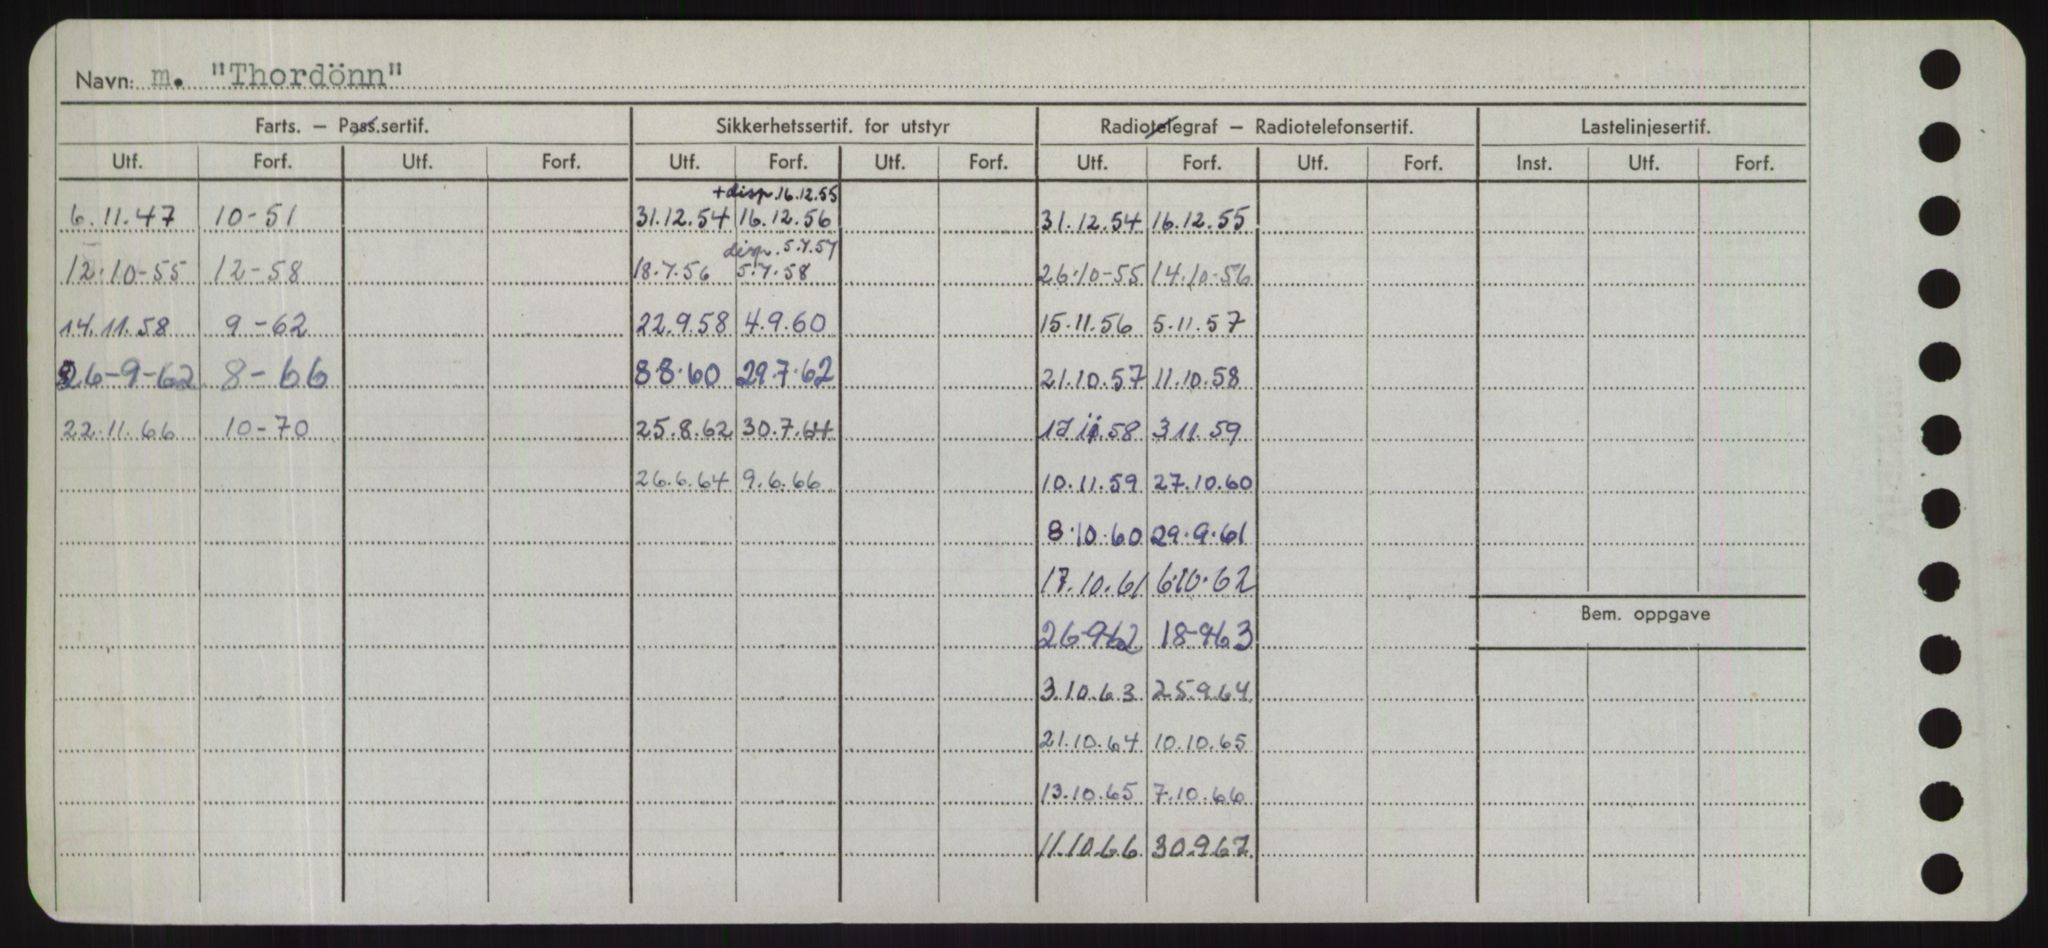 Navn: m. "Thordönn"
Farts. – Pass.sertif. Sikkerhetssertif. for utstyr Radiotelegraf – Radiotelefonsertif. Lastelinjesertif.
Utf. Forf. Utf. Forf. Utf. Forf. Utf. Forf. Utf. Forf. Utf. Forf. Inst. Utf. Forf.
+disp. 16.12.55
6.11.47 10-51 31.12.54 16.12.56 31.12.54 16.12.55
disp. 5.7.57
12.10-55 12-58 18.7.56 5.7.58 26.10-55 14.10-56
14.11.58 9-62 22.9.58 4.9.60 15.11.56 5.11.57
26-9-62 8-66 8.8.60 29.7.62 21.10.57 11.10.58
22.11.66 10-70 25.8.62 30.7.64 17.11.58 3.11.59
26.6.64 9.6.66 10.11.59 27.10.60
8.10.60 29.9.61
17.10.61 6.10.62
26-9-62 18-9-63
3.10.63 25.9.64
Bem. oppgave
21.10.64 10.10.65
13.10.65 7.10.66
11.10.66 30.9.67